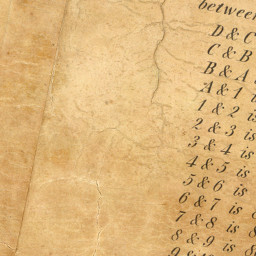 between
D & C
C & B
B & A
A & 1 i
1 & 2 is
2 & 3 is
3 & 4 is
4 & 5 is
5 & 6 is
6 & 7 is 8
7 & 8 is 8
8 & 9 is 8